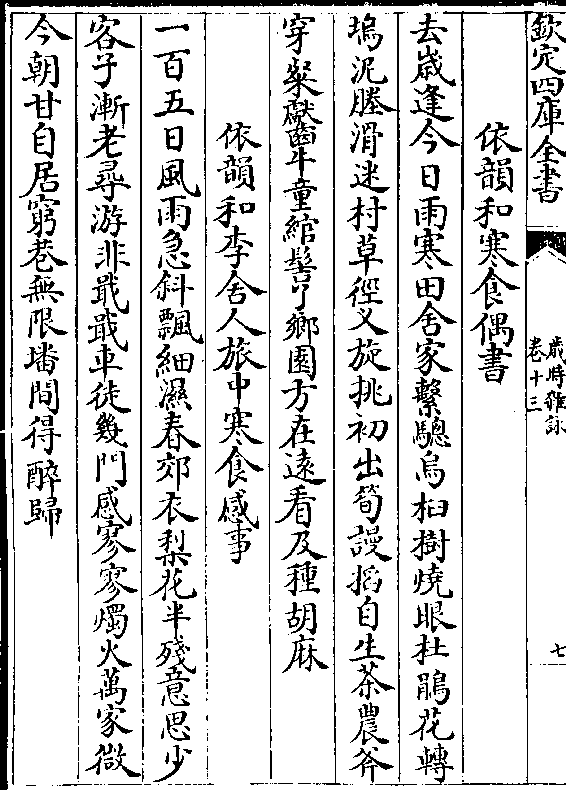 欽定四庫全書
歲時雜詠
卷十三
七
依韻和寒食偶書
去歲逢今日雨寒田舍家繫驄烏桕樹燒眼杜鵑花轉
塢泥塍滑迷村草徑叉旋挑初出筍謾搯自生茶農斧
穿桑獻齒牛童綰髻丫鄉園方在遠看及種胡麻
依韻和李舍人旅中寒食感事
一百五日風雨急斜飄細濕春郊衣梨花半殘意思少
客子漸老尋游非戢戢車徒幾門感寥寥燭火萬家微
今朝甘自居窮巷無限墦間得醉歸